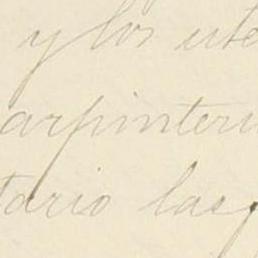 y los ute
arpinteri
tario las